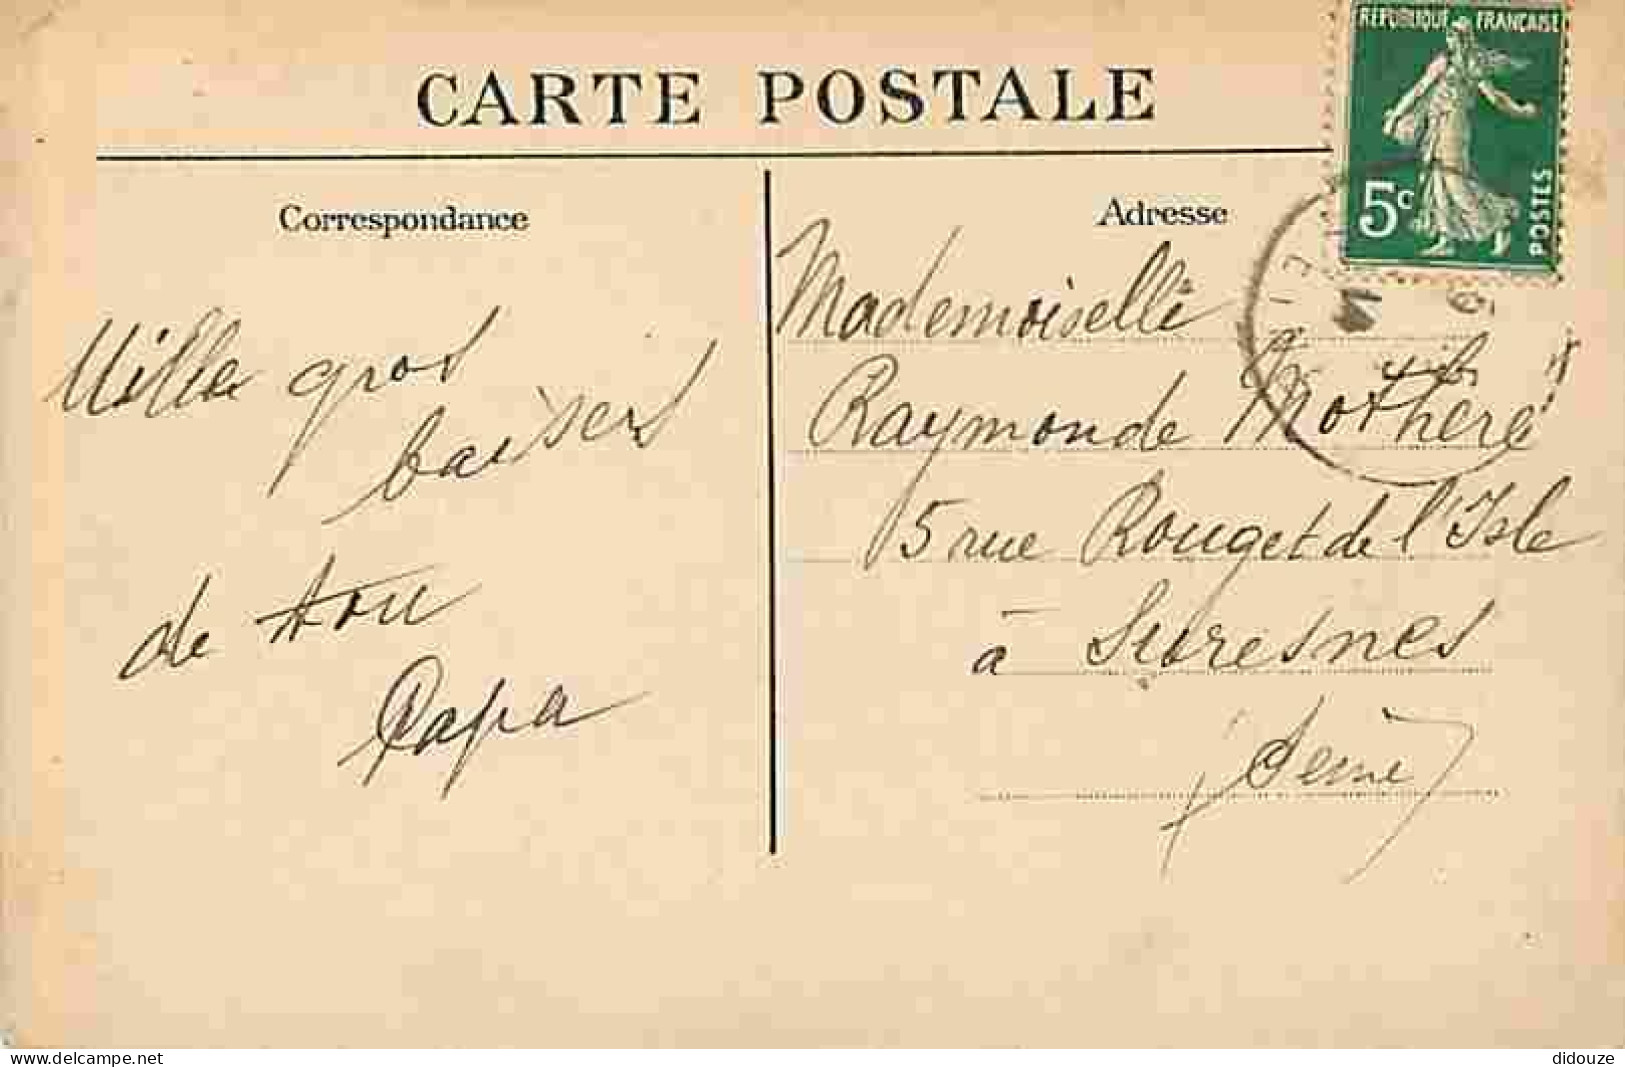 RÉPUBLIQUE FRANÇAISE
5c
POSTES
CARTE POSTALE
Correspondance
Mille gros
baisers
de ton
Papa
Adresse
Mademoiselle
Raymonde Mothere
5 rue Rouget de l'Isle
à Suresnes
(Seine)
www.delcampe.net
didouze